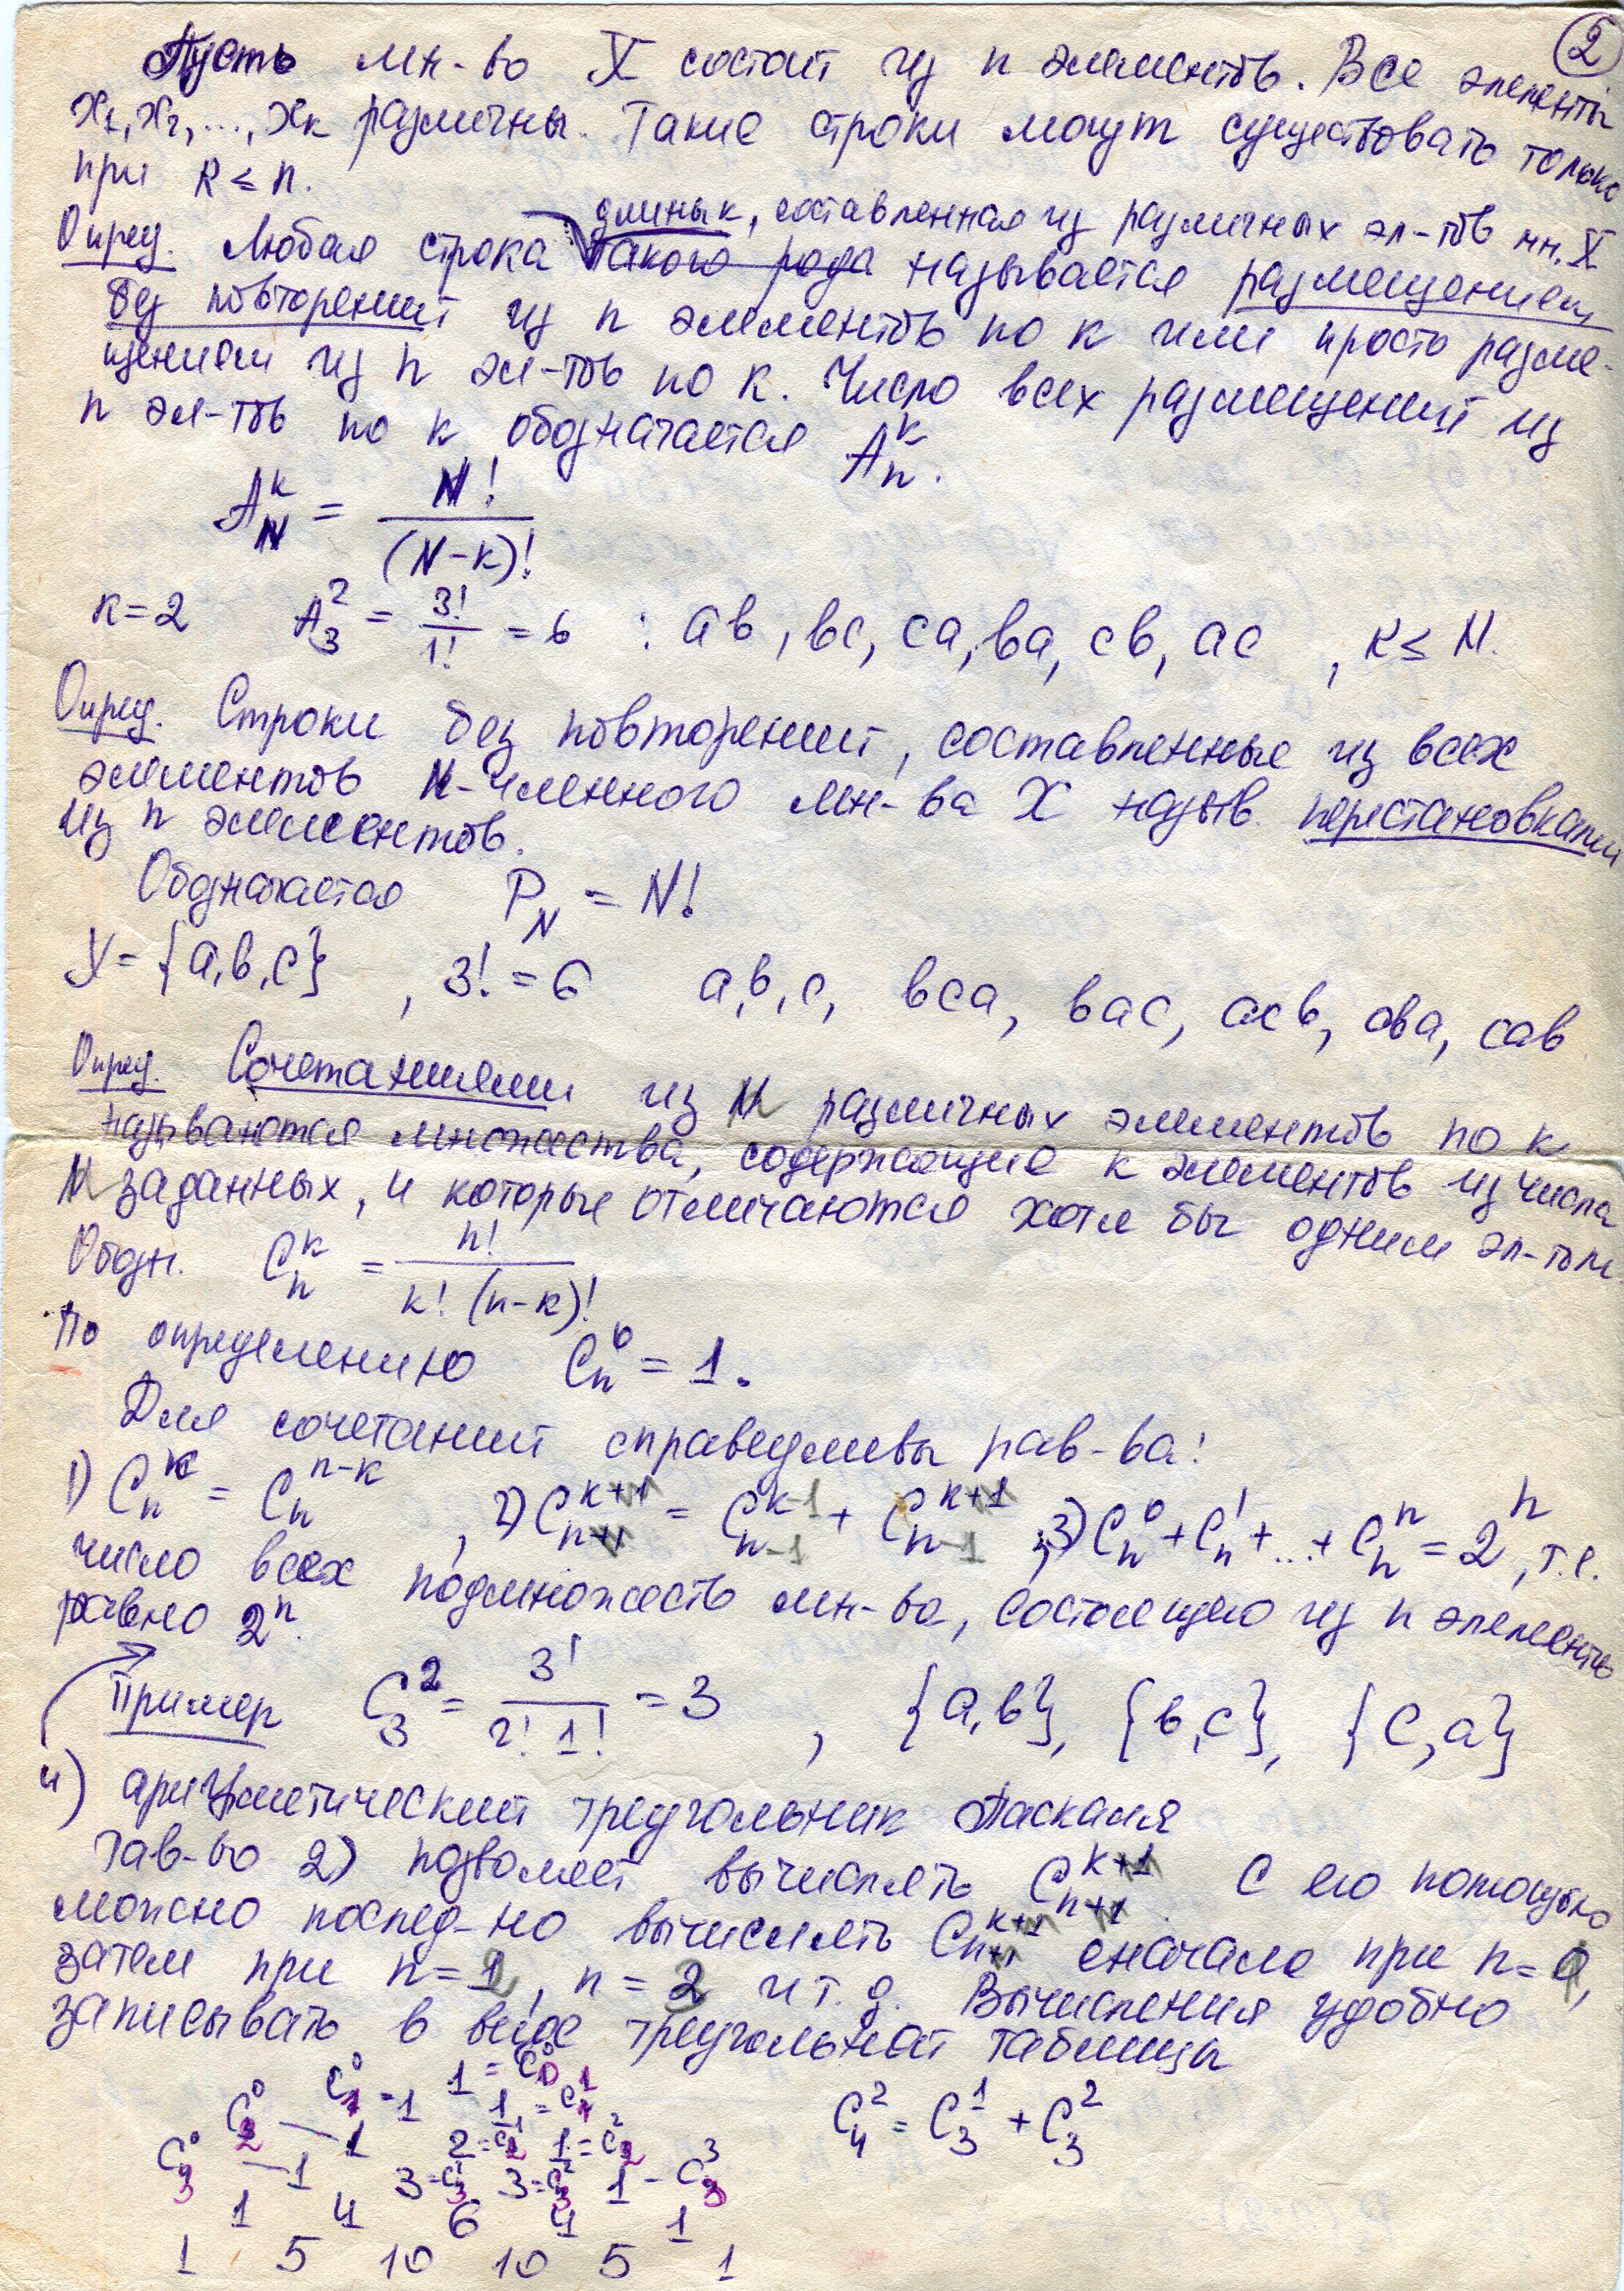 2
Пусть мн-во X состоит из n элементов. Все элементы
x₁, x₂, ..., xₖ различны. Такие строки могут существовать только
при k ≤ n.
длины k, составленная из различных эл-тов мн. X
Опред. Любая строка такого рода называется размещением
без повторений из n элементов по k или просто разме-
щением из n эл-тов по k. Число всех размещений из
n эл-тов по k обозначается Aₙᵏ.
A_N^k = N! / (N-k)!
k=2 A₃² = 3!/1! = 6 : ав, вс, са, ва, св, ас, k ≤ N.
Опред. Строки без повторений, составленные из всех
элементов N-членного мн-ва X назыв. перестановками
из n элементов.
Обозначается P_N = N!
У = {а, в, с}, 3! = 6 а, в, с, вса, вас, асв, сва, сав
Опред. Сочетаниями из N различных элементов по k
называются множества, содержащие k элементов из числа
N заданных, и которые отличаются хотя бы одним эл-том
Обозн. C_n^k = n! / k! (n-k)!
По определению C_n^0 = 1.
Для сочетаний справедливы рав-ва:
1) C_n^k = C_n^{n-k}, 2) C_{n+1}^{k+1} = C_{n-1}^{k-1} + C_{n-1}^{k+1}, 3) C_n^0 + C_n^1 + ... + C_n^n = 2^n, т.е.
число всех подмножеств мн-ва, состоящего из n элементов
равно 2ⁿ.
Пример C₃² = 3! / 2! 1! = 3, {а, в}, {в, с}, {с, а}
4) арифметический треугольник Паскаля
рав-во 2) позволяет вычислять C_{n+1}^{k+1}. С его помощью
можно послед-но вычислять C_{n+1}^{k+1} сначала при n=0,
затем при n=1, n=2 и т.д. Вычисления удобно
записывать в виде треугольной таблицы
1 = C₀⁰
C₁⁰ = 1 1 = C₁¹ C₄² = C₃¹ + C₃²
C₂⁰ — 1 2 = C₂¹ 1 = C₂²
C₃⁰ — 1 3 = C₃¹ 3 = C₃² 1 - C₃³
1 4 6 4 1
1 5 10 10 5 1